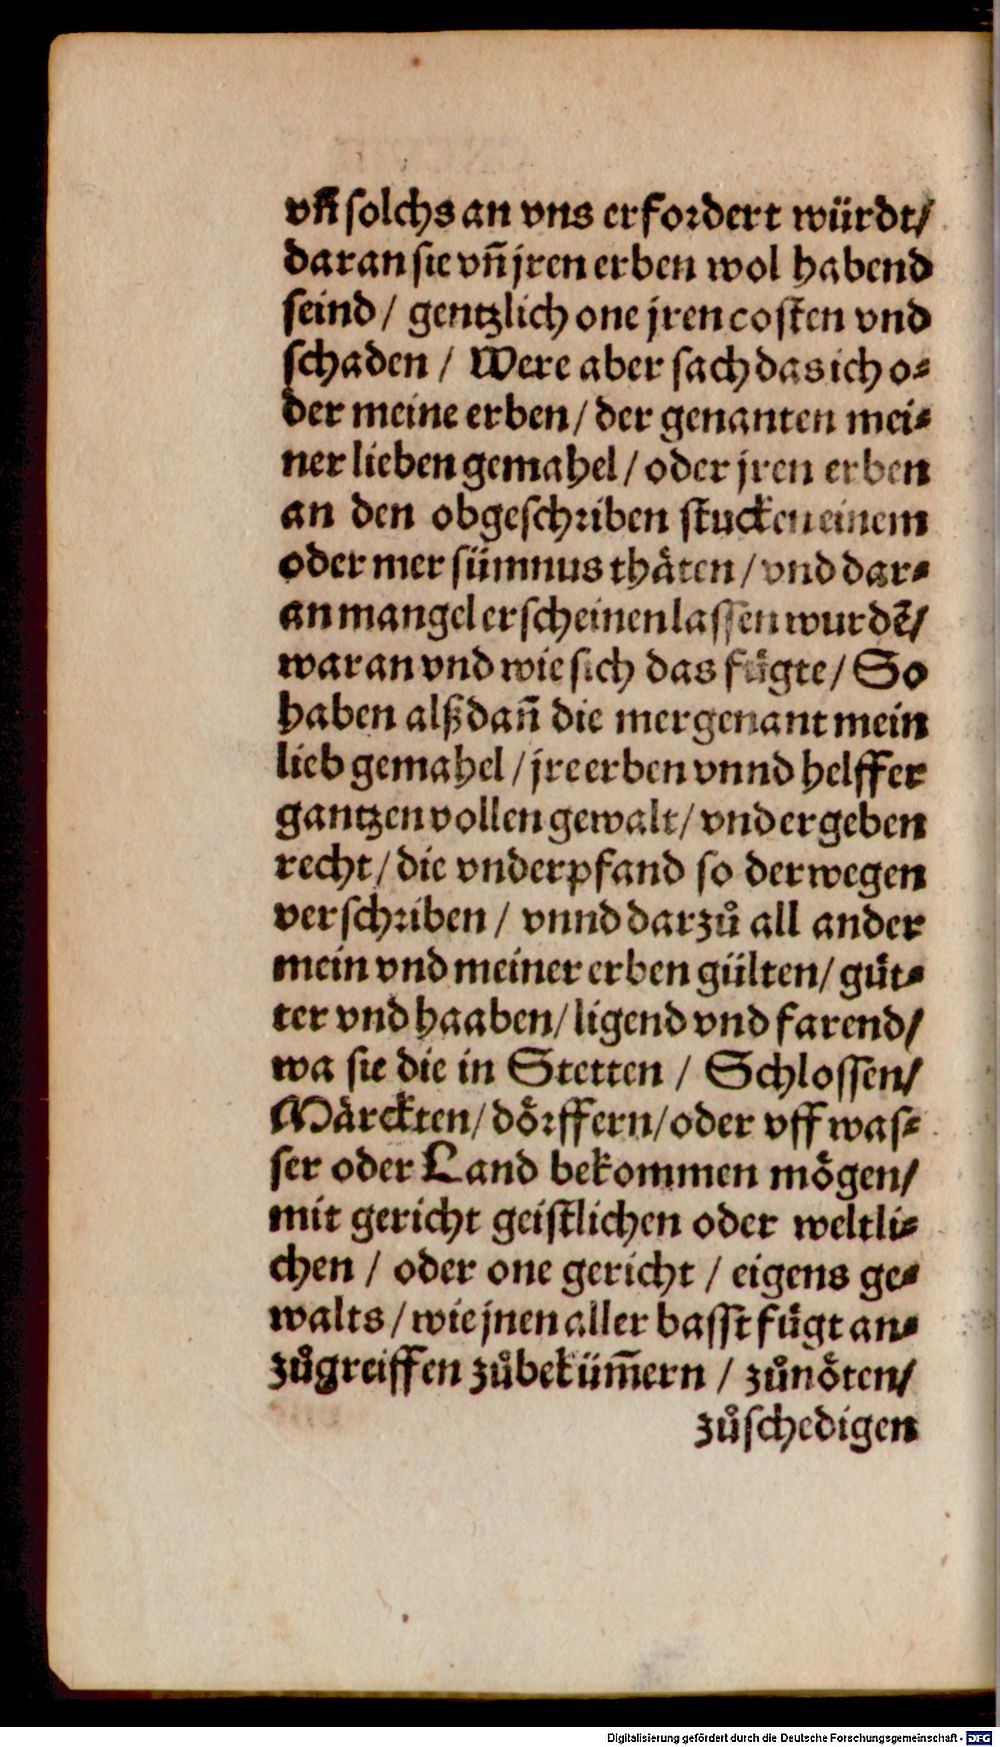 vñ solchs an vns erfordert würdt/
daran sie vñ jren erben wol habend
seind / gentzlich one jren costen vnd
schaden / Were aber sach das ich o⸗
der meine erben / der genanten mei⸗
ner lieben gemahel / oder jren erben
an den obgeschriben stucken einem
oder mer sümnus thäten / vnd dar⸗
an mangel erscheinen lassen wurdẽ/
waran vnd wie sich das fůgte / So
haben alßdañ die mergenant mein
lieb gemahel / jre erben vnnd helffer
gantzen vollen gewalt / vnd ergeben
recht / die vnderpfand so derwegen
verschriben / vnnd darzů all ander
mein vnd meiner erben gülten / gůt⸗
ter vnd haaben / ligend vnd farend/
wa sie die in Stetten / Schlossen/
Märckten / dörffern / oder vff was⸗
ser oder Land bekommen mögen/
mit gericht geistlichen oder weltli⸗
chen / oder one gericht / eigens ge⸗
walts / wie jnen aller basst fůgt an⸗
zůgreiffen zůbeküm̃ern / zůnöten/
zůschedigen
Digitalisierung gefördert durch die Deutsche Forschungsgemeinschaft - DFG